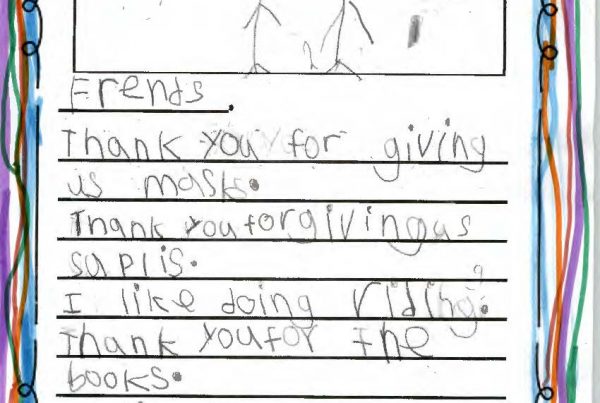 Frends.
Thank you for giving
us masks.
Thank you for giving us
saplis.
I like doing riding.
Thank you for the
books.